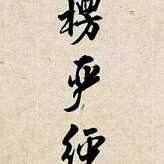 楞严经